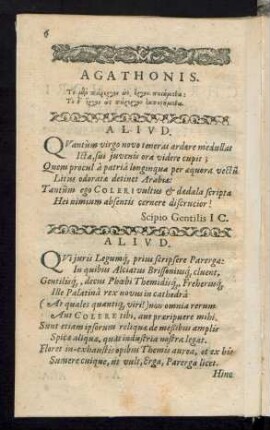 6
AGATHONIS.
Τὸ μὲν πάρεργον ὡς ἔργον ποιούμεθα:
Τὸ δ' ἔργον ὡς πάρεργον ἐκπονούμεθα.
ALIVD.
QVantùm virgo novo teneras ardore medullas
Icta, sui juvenis ora videre cupit;
Quem procul à patriâ longinqua per aequora vectũ
Litus odorata detinet Arabiae:
Tantùm ego COLERI vultus & dedala scripta
Hei nimium absentis cernere discrucior!
Scipio Gentilis I C.
ALIVD.
QVi jurii Legumq, prius scripsere Parerga:
In quibus Alciatus Brissoniusq, cluent,
Gentilisq, decus Phoebi Themidisq, Freherusq,
Ille Palatinâ rex novus in cathedrâ
(At quales quantiq, viri!) nos omnia rerum
Aut COLERE tibi, aut praeripuere mihi.
Sunt etiam ipsorum reliqua de messibus amplis
Spica aliqua, quat industria nostra legat.
Floret in-exhaustis opibus Themis aurea, ut ex his
Sumere cuique, ut vult, Ergo, Parerga licet.
Hinc